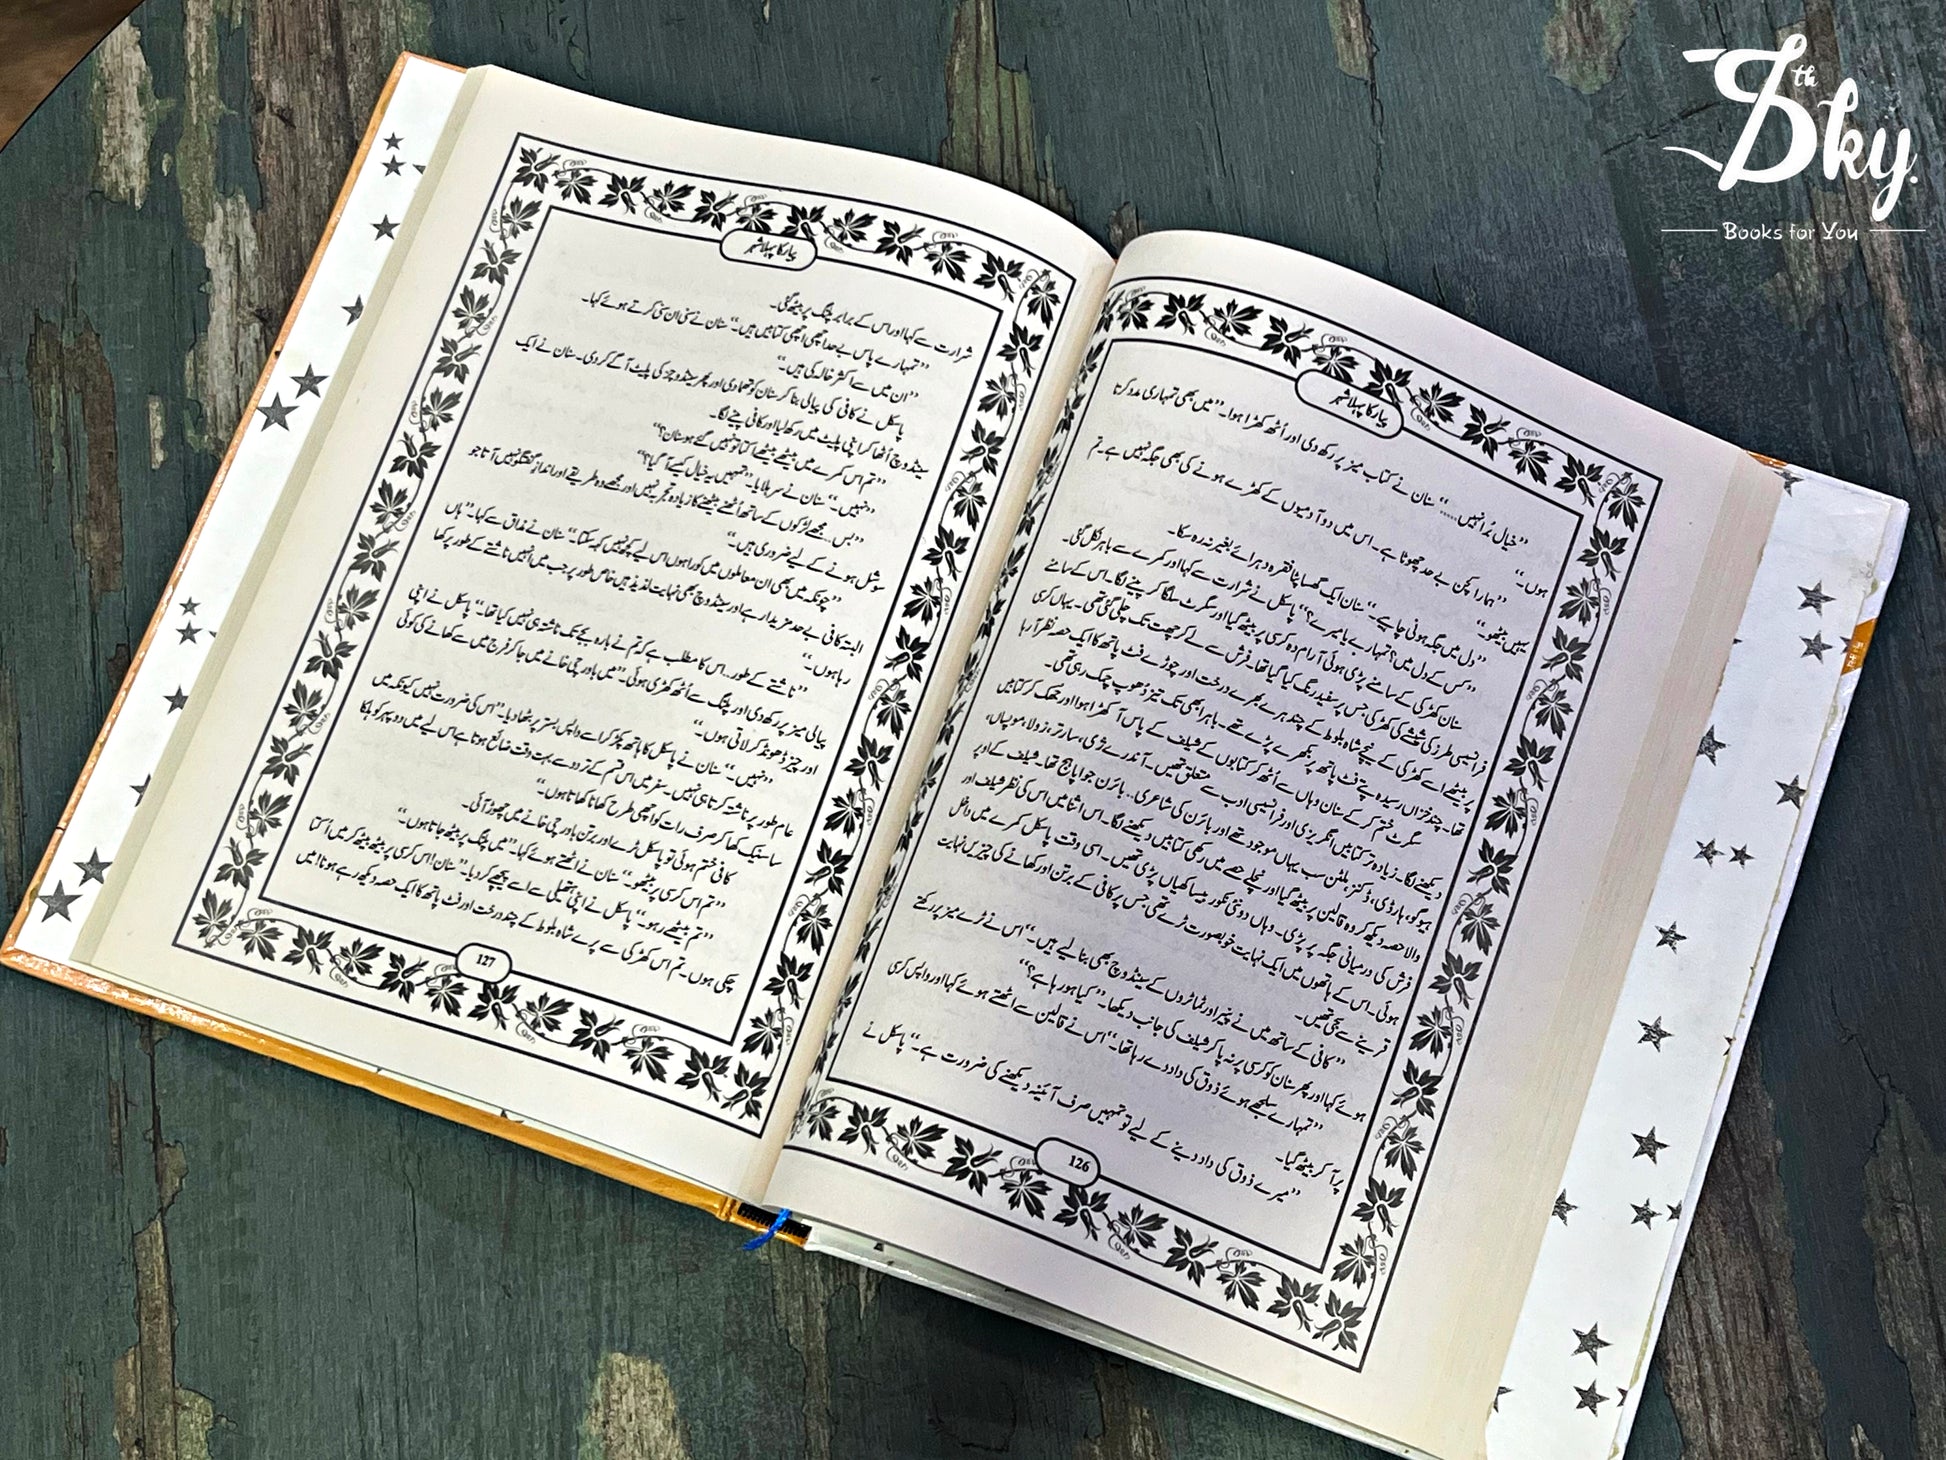 7th Sky.
Books for You
پیار کا پہلا شہر
”خیال بُرا نہیں.....“ سنان نے کتاب میز پر رکھ دی اور اُٹھ کھڑا ہوا۔ ”میں بھی تمہاری مدد کرتا
ہوں۔“
”ہمارا کچن بے حد چھوٹا ہے۔ اس میں دو آدمیوں کے کھڑے ہونے کی بھی جگہ نہیں ہے۔ تم
یہیں بیٹھو۔“
”دل میں جگہ ہونی چاہیے۔“ سنان ایک گھسا پٹا فقرہ دہرائے بغیر نہ رہ سکا۔
”کس کے دل میں؟ تمہارے یا میرے؟“ پاسکل نے شرارت سے کہا اور کمرے سے باہر نکل گئی۔
سنان کھڑکی کے سامنے پڑی ہوئی آرام دہ کرسی پر بیٹھ گیا اور سگرٹ سلگا کر پینے لگا۔ اس کے سامنے
فرانسیسی طرز کی شیشے کی کھڑکی جس پر سفید رنگ کیا گیا تھا۔ فرش سے لے کر چھت تک چلی گئی تھی۔ یہاں کرسی
پر بیٹھے اسے کھڑکی کے نیچے شاہ بلوط کے چند ہرے بھرے درخت اور چوڑے فٹ پاتھ کا ایک حصہ نظر آ رہا
تھا۔ چند خزاں رسیدہ پتے فٹ پاتھ پر بکھرے پڑے تھے۔ باہر ابھی تک تیز دُھوپ چمک رہی تھی۔
سگرٹ ختم کر کے سنان وہاں سے اُٹھ کر کتابوں کے شیلف کے پاس آ کھڑا ہوا اور جھک کر کتابیں
دیکھنے لگا۔ زیادہ تر کتابیں انگریزی اور فرانسیسی ادب سے متعلق تھیں۔ آندرے ژی، سارتر، زولا، موپساں،
ہیوگو، ہارڈی، ڈکنز، ملٹن سب یہاں موجود تھے اور بائرن کی شاعری.. بائرن جو اپاہج تھا۔ شیلف کے اوپر
والا حصہ دیکھ کر وہ قالین پر بیٹھ گیا اور نچلے حصے میں رکھی کتابیں دیکھنے لگا۔ اس اثنا میں اس کی نظر شیلف اور
فرش کی درمیانی جگہ پر پڑی۔ وہاں دو نئی نکور بیساکھیاں پڑی تھیں۔ اسی وقت پاسکل کمرے میں داخل
ہوئی۔ اس کے ہاتھوں میں ایک نہایت خوبصورت ٹرے تھی جس پر کافی کے برتن اور کھانے کی چیزیں نہایت
قرینے سے سجی تھیں۔
”کافی کے ساتھ میں نے پنیر اور ٹماٹروں کے سینڈوچ بھی بنا لیے ہیں۔“ اس نے ٹرے میز پر رکھتے
ہوئے کہا اور پھر سنان کو کرسی پر نہ پا کر شیلف کی جانب دیکھا۔ ”کیا ہو رہا ہے؟“
”تمہارے سلجھے ہوئے ذوق کی داد دے رہا تھا۔“ اس نے قالین سے اٹھتے ہوئے کہا اور واپس کرسی
پر آ کر بیٹھ گیا۔
”میرے ذوق کی داد دینے کے لیے تو تمہیں صرف آئینہ دیکھنے کی ضرورت ہے۔“ پاسکل نے
126
پیار کا پہلا شہر
شرارت سے کہا اور اس کے برابر پلنگ پر بیٹھ گئی۔
”تمہارے پاس بے حد اچھی اچھی کتابیں ہیں۔“ سنان نے سُنی اَن سُنی کرتے ہوئے کہا۔
”ان میں سے اکثر خالہ کی ہیں۔“
پاسکل نے کافی کی پیالی بنا کر سنان کو تھما دی اور پھر سینڈوچز کی پلیٹ آگے کر دی۔ سنان نے ایک
سینڈوچ اُٹھا کر اپنی پلیٹ میں رکھ لیا اور کافی پینے لگا۔
”تم اس کمرے میں بیٹھے بیٹھے اُکتا تو نہیں گئے ہو سنان؟“
”نہیں۔“ سنان نے سر ہلایا۔ ”تمہیں یہ خیال کیسے آ گیا؟“
”بس.. مجھے لڑکوں کے ساتھ اُٹھنے بیٹھنے کا زیادہ تجربہ نہیں اور مجھے وہ طریقے اور اندازِ گفتگو نہیں آتا جو
سوشل ہونے کے لیے ضروری ہیں۔“
”چونکہ میں بھی ان معاملوں میں کورا ہوں اس لیے کچھ نہیں کہہ سکتا۔“ سنان نے مذاق سے کہا۔ ”ہاں
البتہ کافی بے حد مزیدار ہے اور سینڈوچ بھی نہایت لذیذ ہیں خاص طور پر جب میں انہیں ناشتے کے طور پر کھا
رہا ہوں۔“
”ناشتے کے طور.. اس کا مطلب ہے کہ تم نے بارہ بجے تک ناشتہ ہی نہیں کیا تھا۔“ پاسکل نے اپنی
پیالی میز پر رکھ دی اور پلنگ سے اُٹھ کھڑی ہوئی۔ ”میں باورچی خانے میں جا کر فرج میں سے کھانے کی کوئی
اور چیز ڈھونڈ کر لاتی ہوں۔“
”نہیں۔“ سنان نے پاسکل کا ہاتھ پکڑ کر اسے واپس بستر پر بٹھا دیا۔ ”اس کی ضرورت نہیں کیونکہ میں
عام طور پر ناشتہ کرتا ہی نہیں۔ سفر میں اس قسم کے تردد سے بہت وقت ضائع ہوتا ہے اس لیے میں دوپہر کو ہلکا
سا سنیک کھا کر صرف رات کو اچھی طرح کھانا کھاتا ہوں۔“
کافی ختم ہوئی تو پاسکل ٹرے اور برتن باورچی خانے میں چھوڑ آئی۔
”تم اس کرسی پر بیٹھو۔“ سنان نے اٹھتے ہوئے کہا۔ ”میں پلنگ پر بیٹھ جاتا ہوں۔“
”تم بیٹھے رہو۔“ پاسکل نے اپنی ہتھیلی سے اسے پیچھے کر دیا۔ ”سنان! اس کرسی پر بیٹھ بیٹھ کر میں اُکتا
چکی ہوں۔ تم اس کھڑکی سے پرے شاہ بلوط کے چند درخت اور فٹ پاتھ کا ایک حصہ دیکھ رہے ہو نا! میں
127